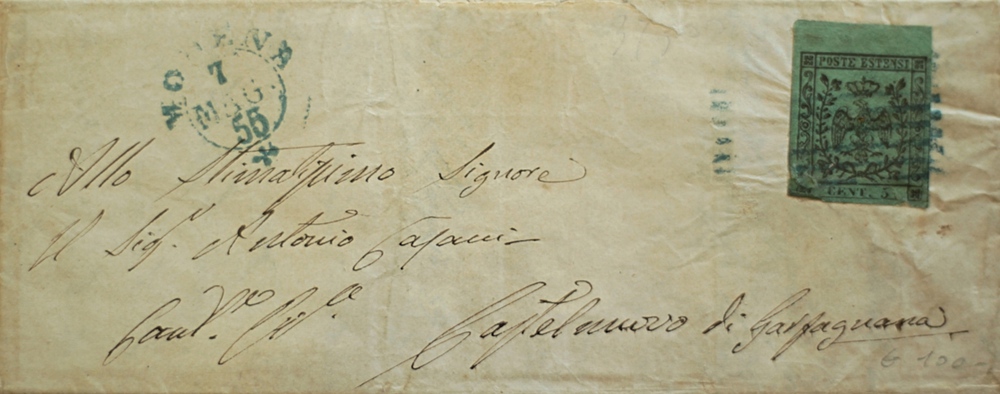 MODENA
7
MAG.
55
POSTE ESTENSI
CENT. 5.
Allo Stimatissimo Signore
Il Sigr. Antonio
Castelnuovo di Garfagnana
€ 100-